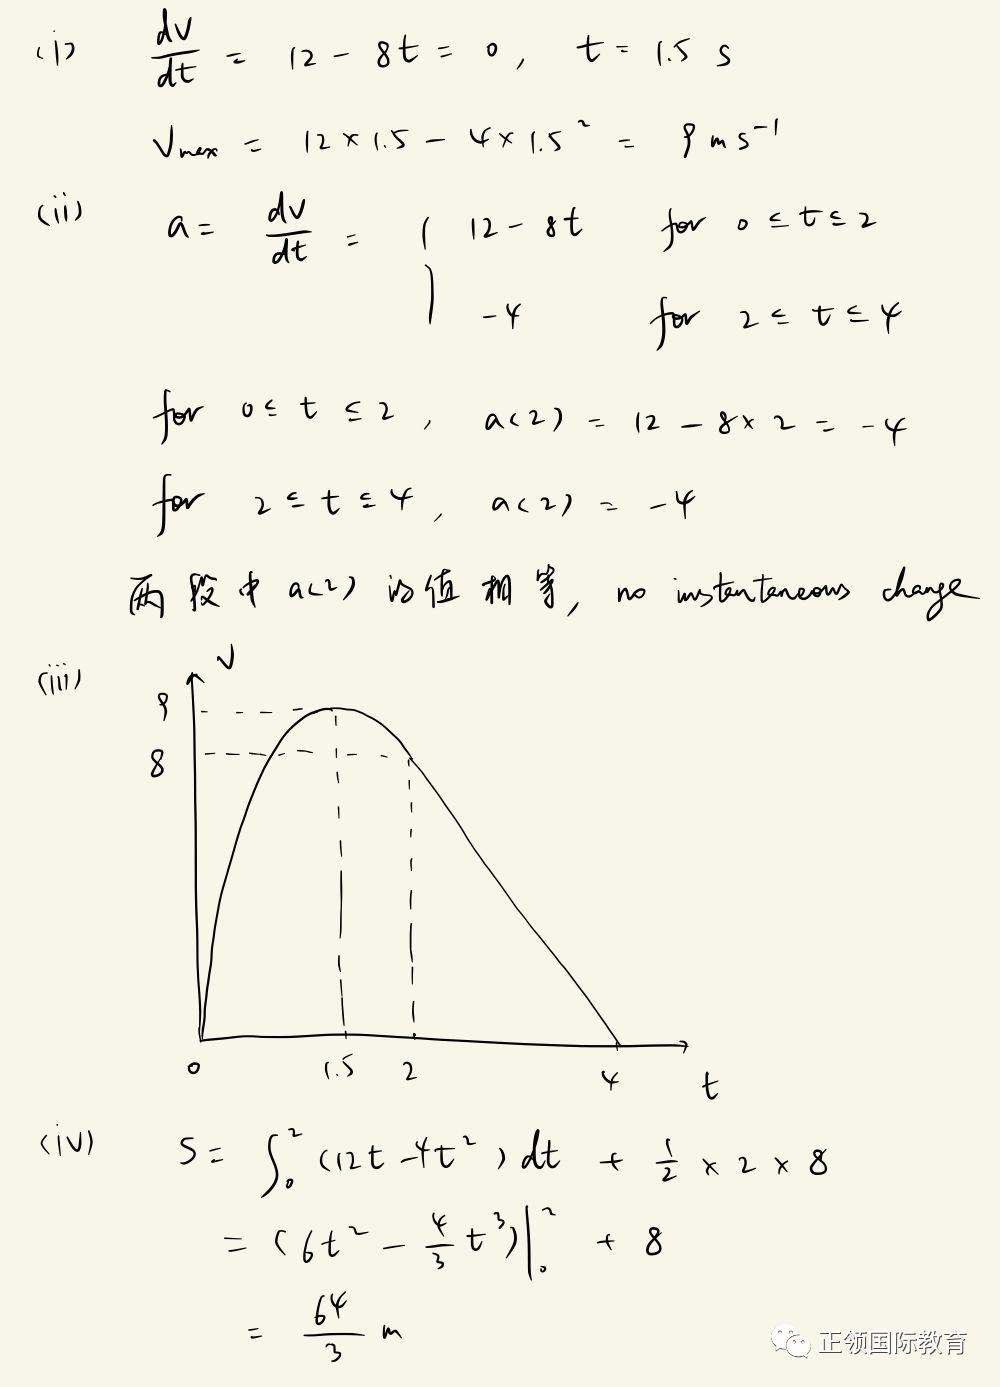 (i) dv/dt = 12 - 8t = 0, t = 1.5 s
Vmax = 12 × 1.5 - 4 × 1.5² = 9 m s⁻¹
(ii) a = dv/dt = { 12 - 8t for 0 ≤ t ≤ 2
-4 for 2 ≤ t ≤ 4
for 0 ≤ t ≤ 2, a(2) = 12 - 8 × 2 = -4
for 2 ≤ t ≤ 4, a(2) = -4
两段中 a(2) 的值相等, no instantaneous change
(iii) V
9
8
0 1.5 2 4 t
(iv) S = ∫₀² (12t - 4t²) dt + 1/2 × 2 × 8
= (6t² - 4/3 t³)|₀² + 8
= 64/3 m
正领国际教育